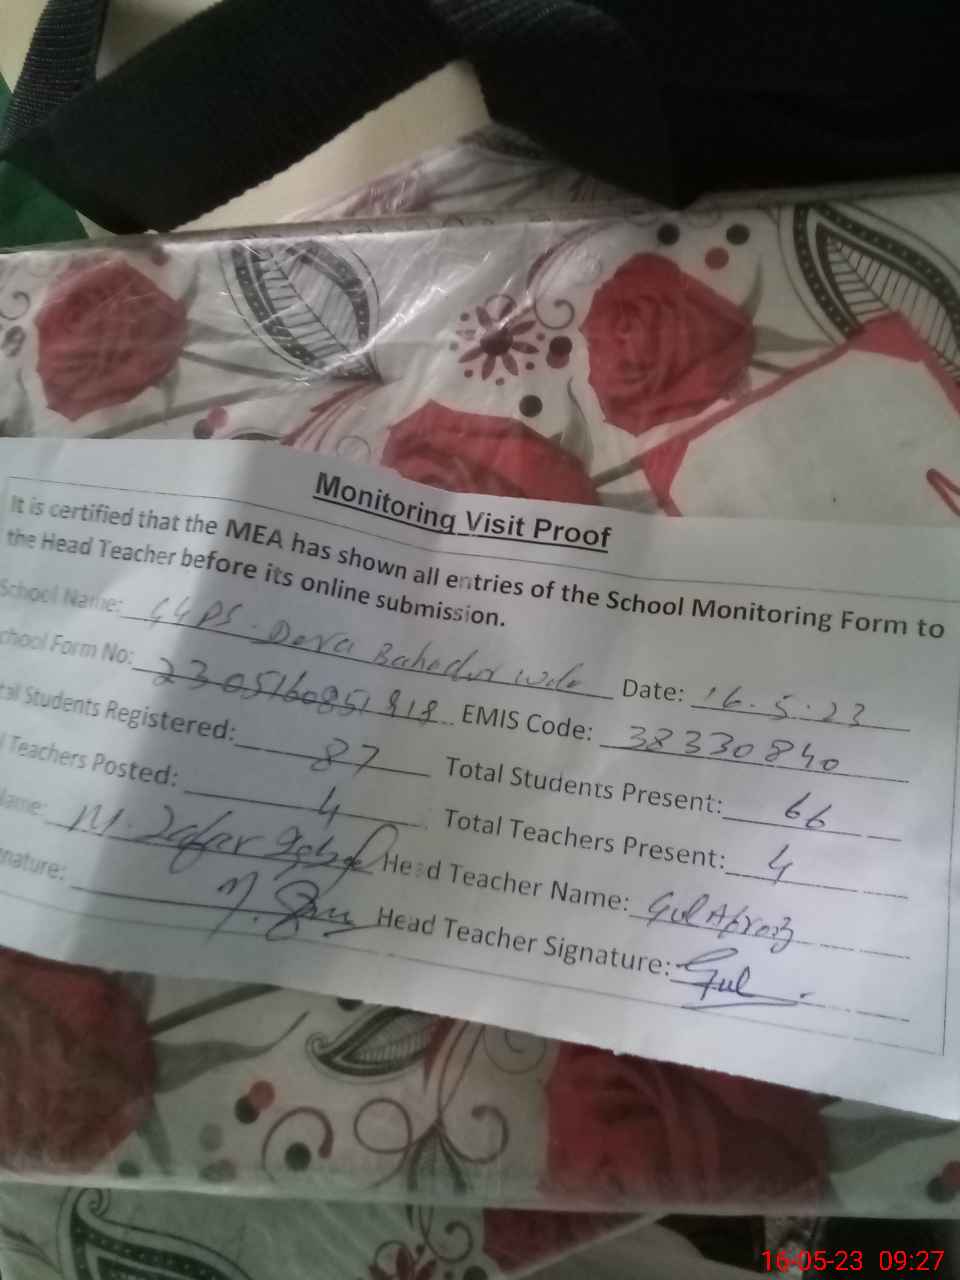 Monitoring Visit Proof
It is certified that the MEA has shown all entries of the School Monitoring Form to
the Head Teacher before its online submission.
School Name: GGPS. Dera Bahadur Wala Date: 16.5.23
chool Form No: 2305160851818 EMIS Code: 38330840
tal Students Registered: 87 Total Students Present: 66
l Teachers Posted: 4 Total Teachers Present: 4
Name: M. Zafar Iqbal Head Teacher Name: Gul Afroz
nature: Head Teacher Signature: Gul
16-05-23 09:27